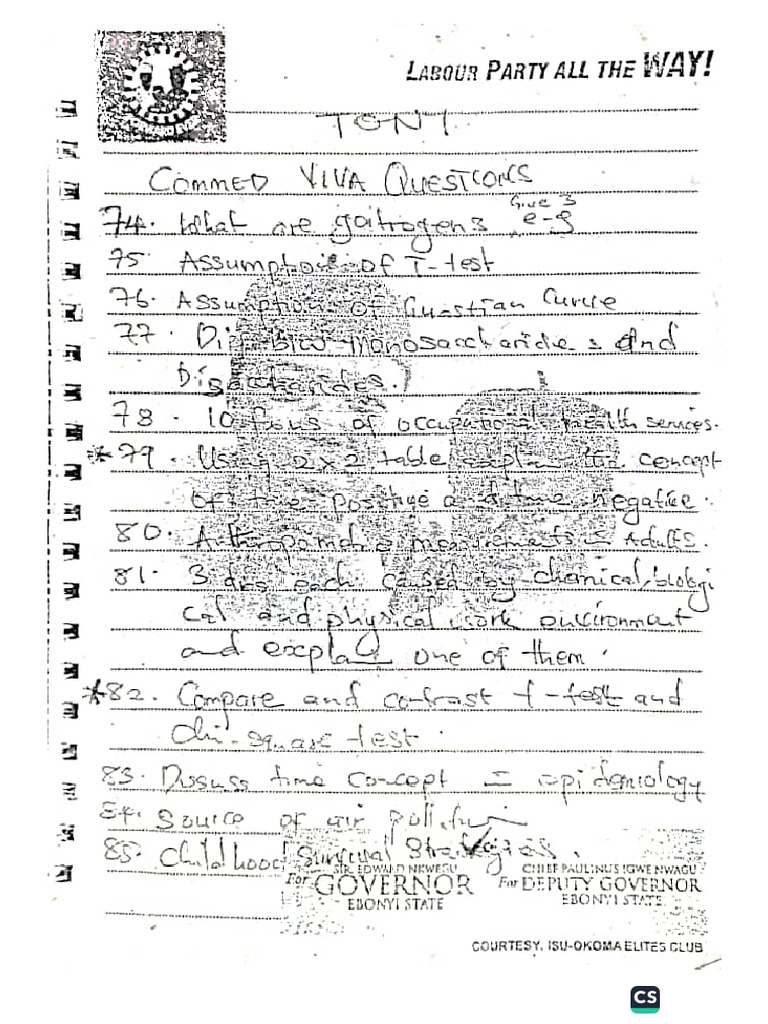 LABOUR PARTY ALL THE WAY!
TONY
COMMED VIVA QUESTIONS
Give 3
74. What are goitrogens e-g
75. Assumption of T-test
76. Assumption of Guastian Curve
77. Diff b/w Monosaccharides and
Disaccharides.
78. 10 focus of occupational health services.
*79. Using 2x2 table explain the concept
of true positive and true negative.
80. Anthropometric measurements in Adults.
81. 3 dxs each caused by chemical, biologi
cal and physical work environment
and explain one of them.
*82. Compare and contrast t-test and
Chi-square test.
83. Discuss time concept in epidemiology
84. Source of air pollution
85. Childhood Survival Strategies.
SIR. EDWARD NKWEGU
For GOVERNOR
EBONYI STATE
CHIEF PAULINUS IGWE NWAGU
For DEPUTY GOVERNOR
EBONYI STATE
COURTESY, ISU-OKOMA ELITES CLUB
CS